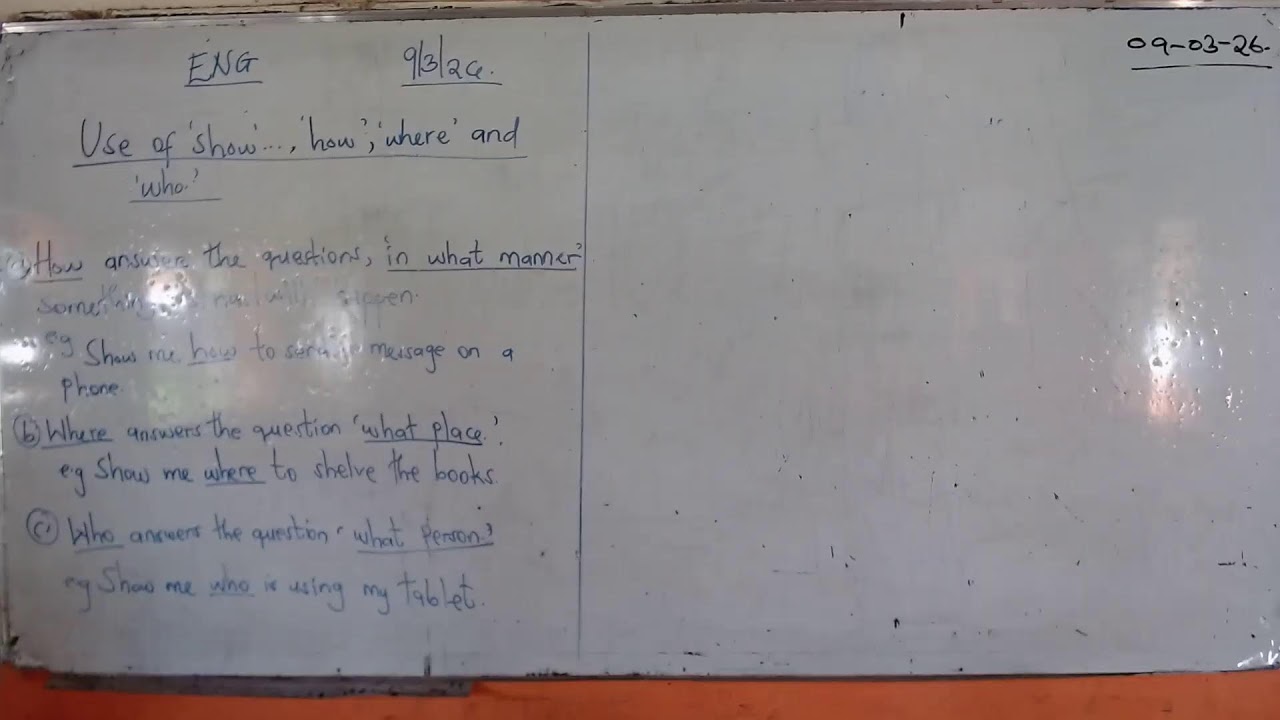 ENG 9/3/26.
09-03-26.
Use of 'show'..., 'how', 'where' and
'who.'
a) How answers the questions, 'in what manner'
something will happen.
eg Show me how to send message on a
phone.
b) Where answers the question 'what place.'
eg Show me where to shelve the books.
c) Who answers the question 'what person.'
eg Show me who is using my tablet.